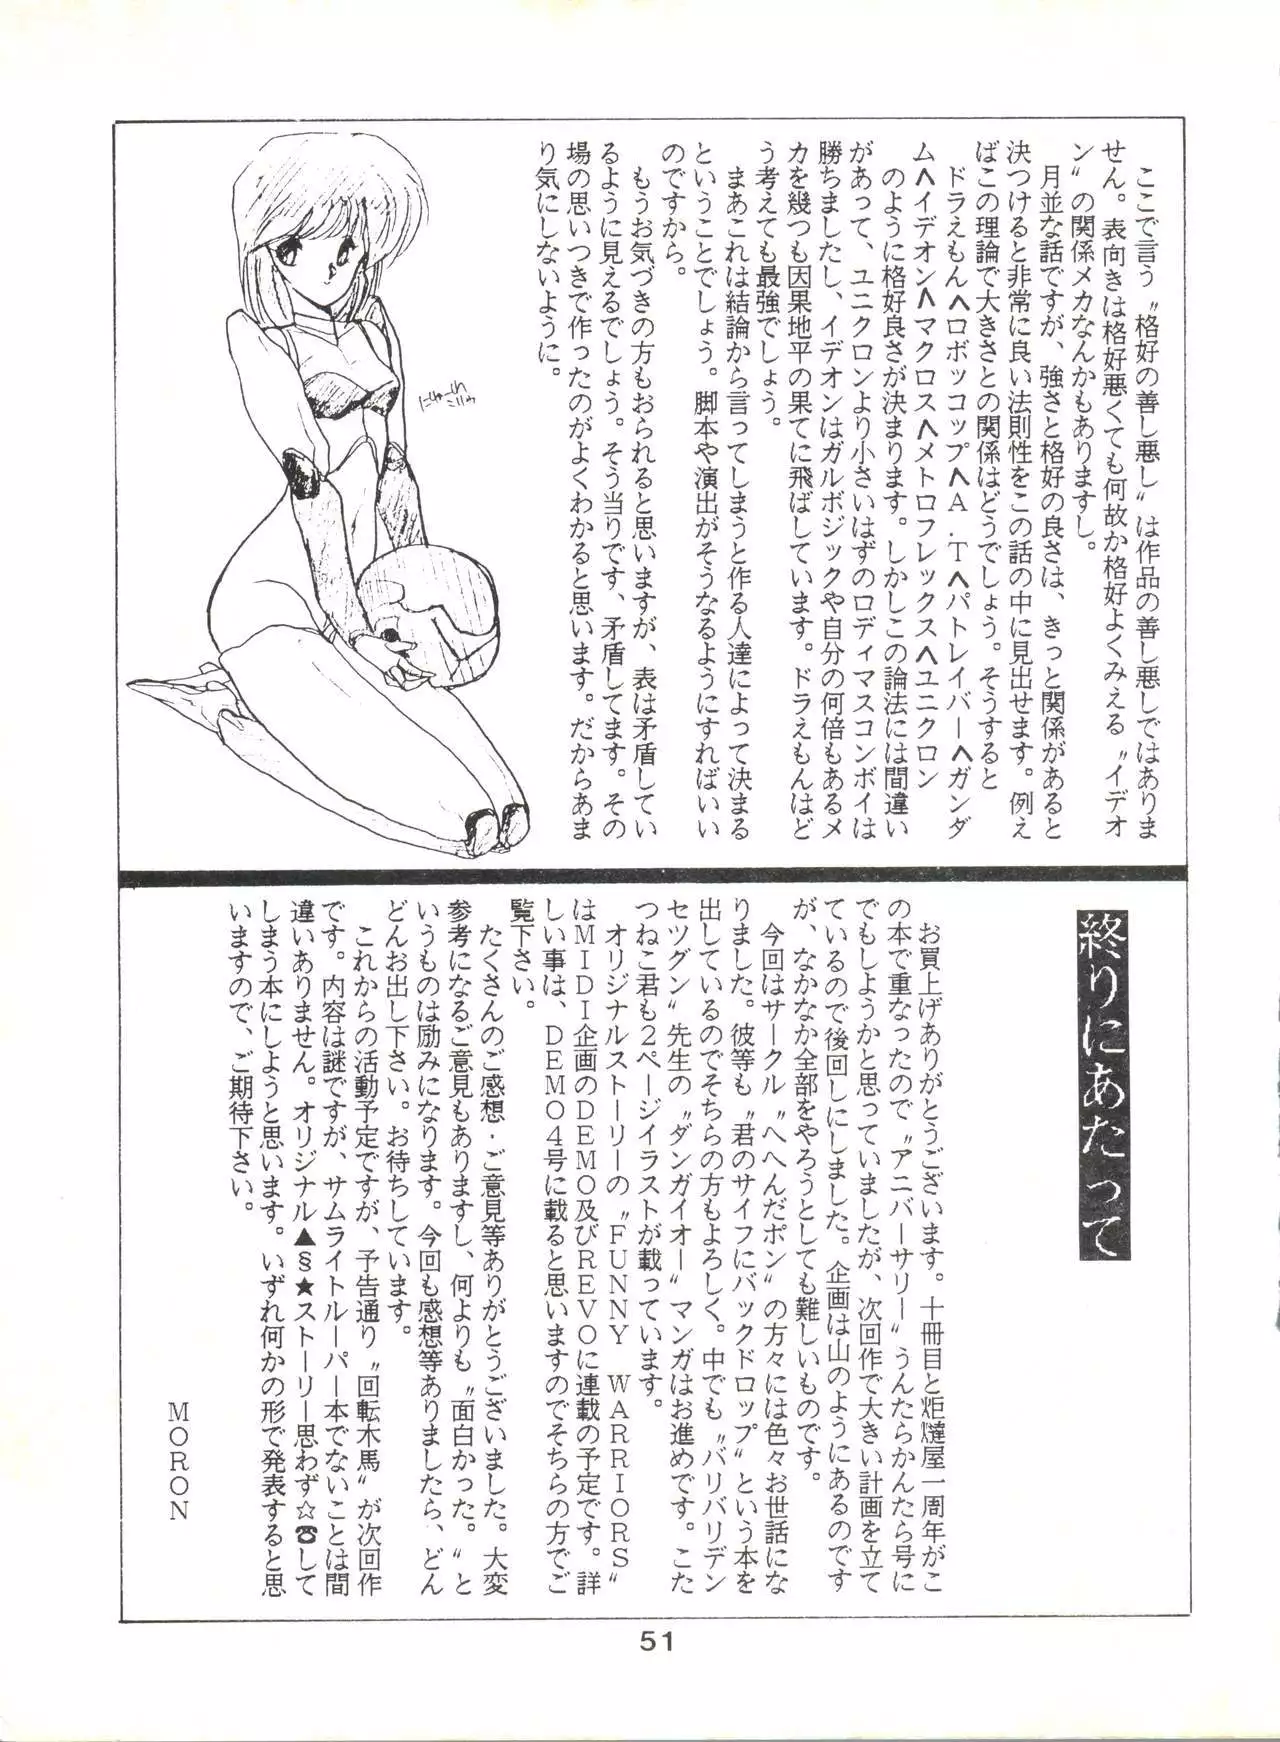 ここで言う〝格好の善し悪し〟は作品の善し悪しではありま
せん。表向きは格好悪くても何故か格好よくみえる〝イデオ
ン〟の関係メカなんかもありますし。
月並な話ですが、強さと格好の良さは、きっと関係があると
決つけると非常に良い法則性をこの話の中に見出せます。例え
ばこの理論で大きさとの関係はどうでしょう。そうすると
ドラえもん<ロボッコップ<A.T<パトレイバー<ガンダ
ム<イデオン<マクロス<メトロフレックス<ユニクロン
のように格好良さが決まります。しかしこの論法には間違い
があって、ユニクロンより小さいはずのロディマスコンボイは
勝ちましたし、イデオンはガルボジックや自分の何倍もあるメ
カを幾つも因果地平の果てに飛ばしています。ドラえもんはど
う考えても最強でしょう。
まあこれは結論から言ってしまうと作る人達によって決まる
ということでしょう。脚本や演出がそうなるようにすればいい
のですから。
もうお気づきの方もおられると思いますが、表は矛盾してい
るように見えるでしょう。そう当りです、矛盾してます。その
場の思いつきで作ったのがよくわかると思います。だからあま
り気にしないように。
終りにあたって
お買上げありがとうございます。十冊目と炬燵屋一周年がこ
の本で重なったので〝アニバーサリー〟うんたらかんたら号に
でもしようかと思っていましたが、次回作で大きい計画を立て
ているので後回しにしました。企画は山のようにあるのです
が、なかなか全部をやろうとしても難しいものです。
今回はサークル〝へへんだポン〟の方々には色々お世話にな
りました。彼等も〝君のサイフにバックドロップ〟という本を
出しているのでそちらの方もよろしく。中でも〝バリバリデン
セツグン〟先生の〝ダンガイオー〟マンガはお進めです。こた
つねこ君も2ページイラストが載っています。
オリジナルストーリーの〝FUNNY WARRIORS〟
はMIDI企画のDEMO及びREVOに連載の予定です。詳
しい事は、DEMO4号に載ると思いますのでそちらの方でご
覧下さい。
たくさんのご感想・ご意見等ありがとうございました。大変
参考になるご意見もありますし、何よりも〝面白かった。〟と
いうものは励みになります。今回も感想等ありましたら、どん
どんお出し下さい。お待ちしています。
これからの活動予定ですが、予告通り〝回転木馬〟が次回作
です。内容は謎ですが、サムライトルーパー本でないことは間
違いありません。オリジナル▲§★ストーリー思わず☆☎して
しまう本にしようと思います。いずれ何かの形で発表すると思
いますので、ご期待下さい。
MORON
51